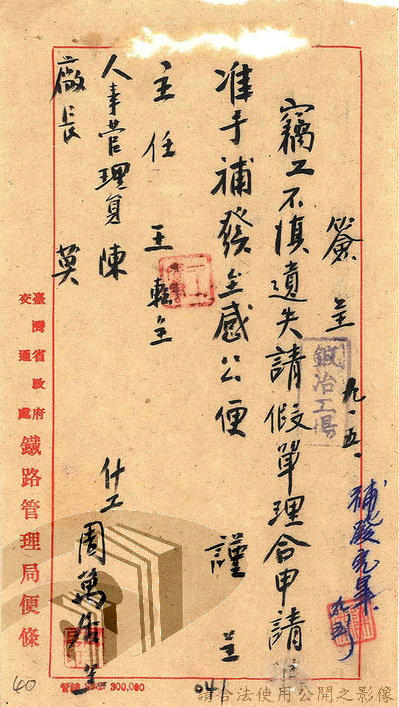 簽呈 九、五、
竊工不慎遺失請假單理合申請
准予補發至感公便 謹呈
主任 王 轉呈
人事管理員 陳
廠長 莫
什工 周萬 呈
鍛冶工場
補發完畢
九、五
臺灣省政府
交通處
鐵路管理局便條
300,000
041
40
請合法使用公開之影像